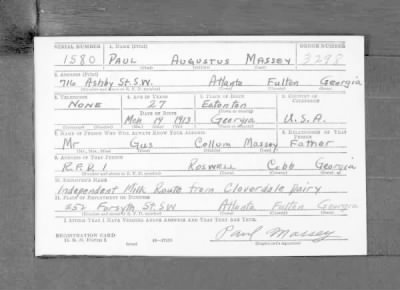 SERIAL NUMBER 1. NAME (Print) ORDER NUMBER
1580 PAUL AUGUSTUS MASSEY 3298
(First) (Middle) (Last)
2. ADDRESS (Print)
716 Ashby St. S.W. Atlanta Fulton Georgia
3. TELEPHONE 4. AGE IN YEARS 5. PLACE OF BIRTH 6. COUNTRY OF CITIZENSHIP
NONE 27 Eatonton
DATE OF BIRTH
May 19 1913 Georgia U.S.A.
7. NAME OF PERSON WHO WILL ALWAYS KNOW YOUR ADDRESS 8. RELATIONSHIP OF THAT PERSON
Mr Gus Collum Massey Father
(Mr., Mrs., Miss) (First) (Middle) (Last)
9. ADDRESS OF THIS PERSON
R.F.D. 1 Roswell Cobb Georgia
10. EMPLOYER'S NAME
Independent Milk Route from Cloverdale Dairy
11. PLACE OF EMPLOYMENT OR BUSINESS
252 Forsyth St. S.W Atlanta Fulton Georgia
I AFFIRM THAT I HAVE VERIFIED ABOVE ANSWERS AND THAT THEY ARE TRUE.
REGISTRATION CARD
D. S. S. Form 1
Paul Massey
(Registrant's signature)